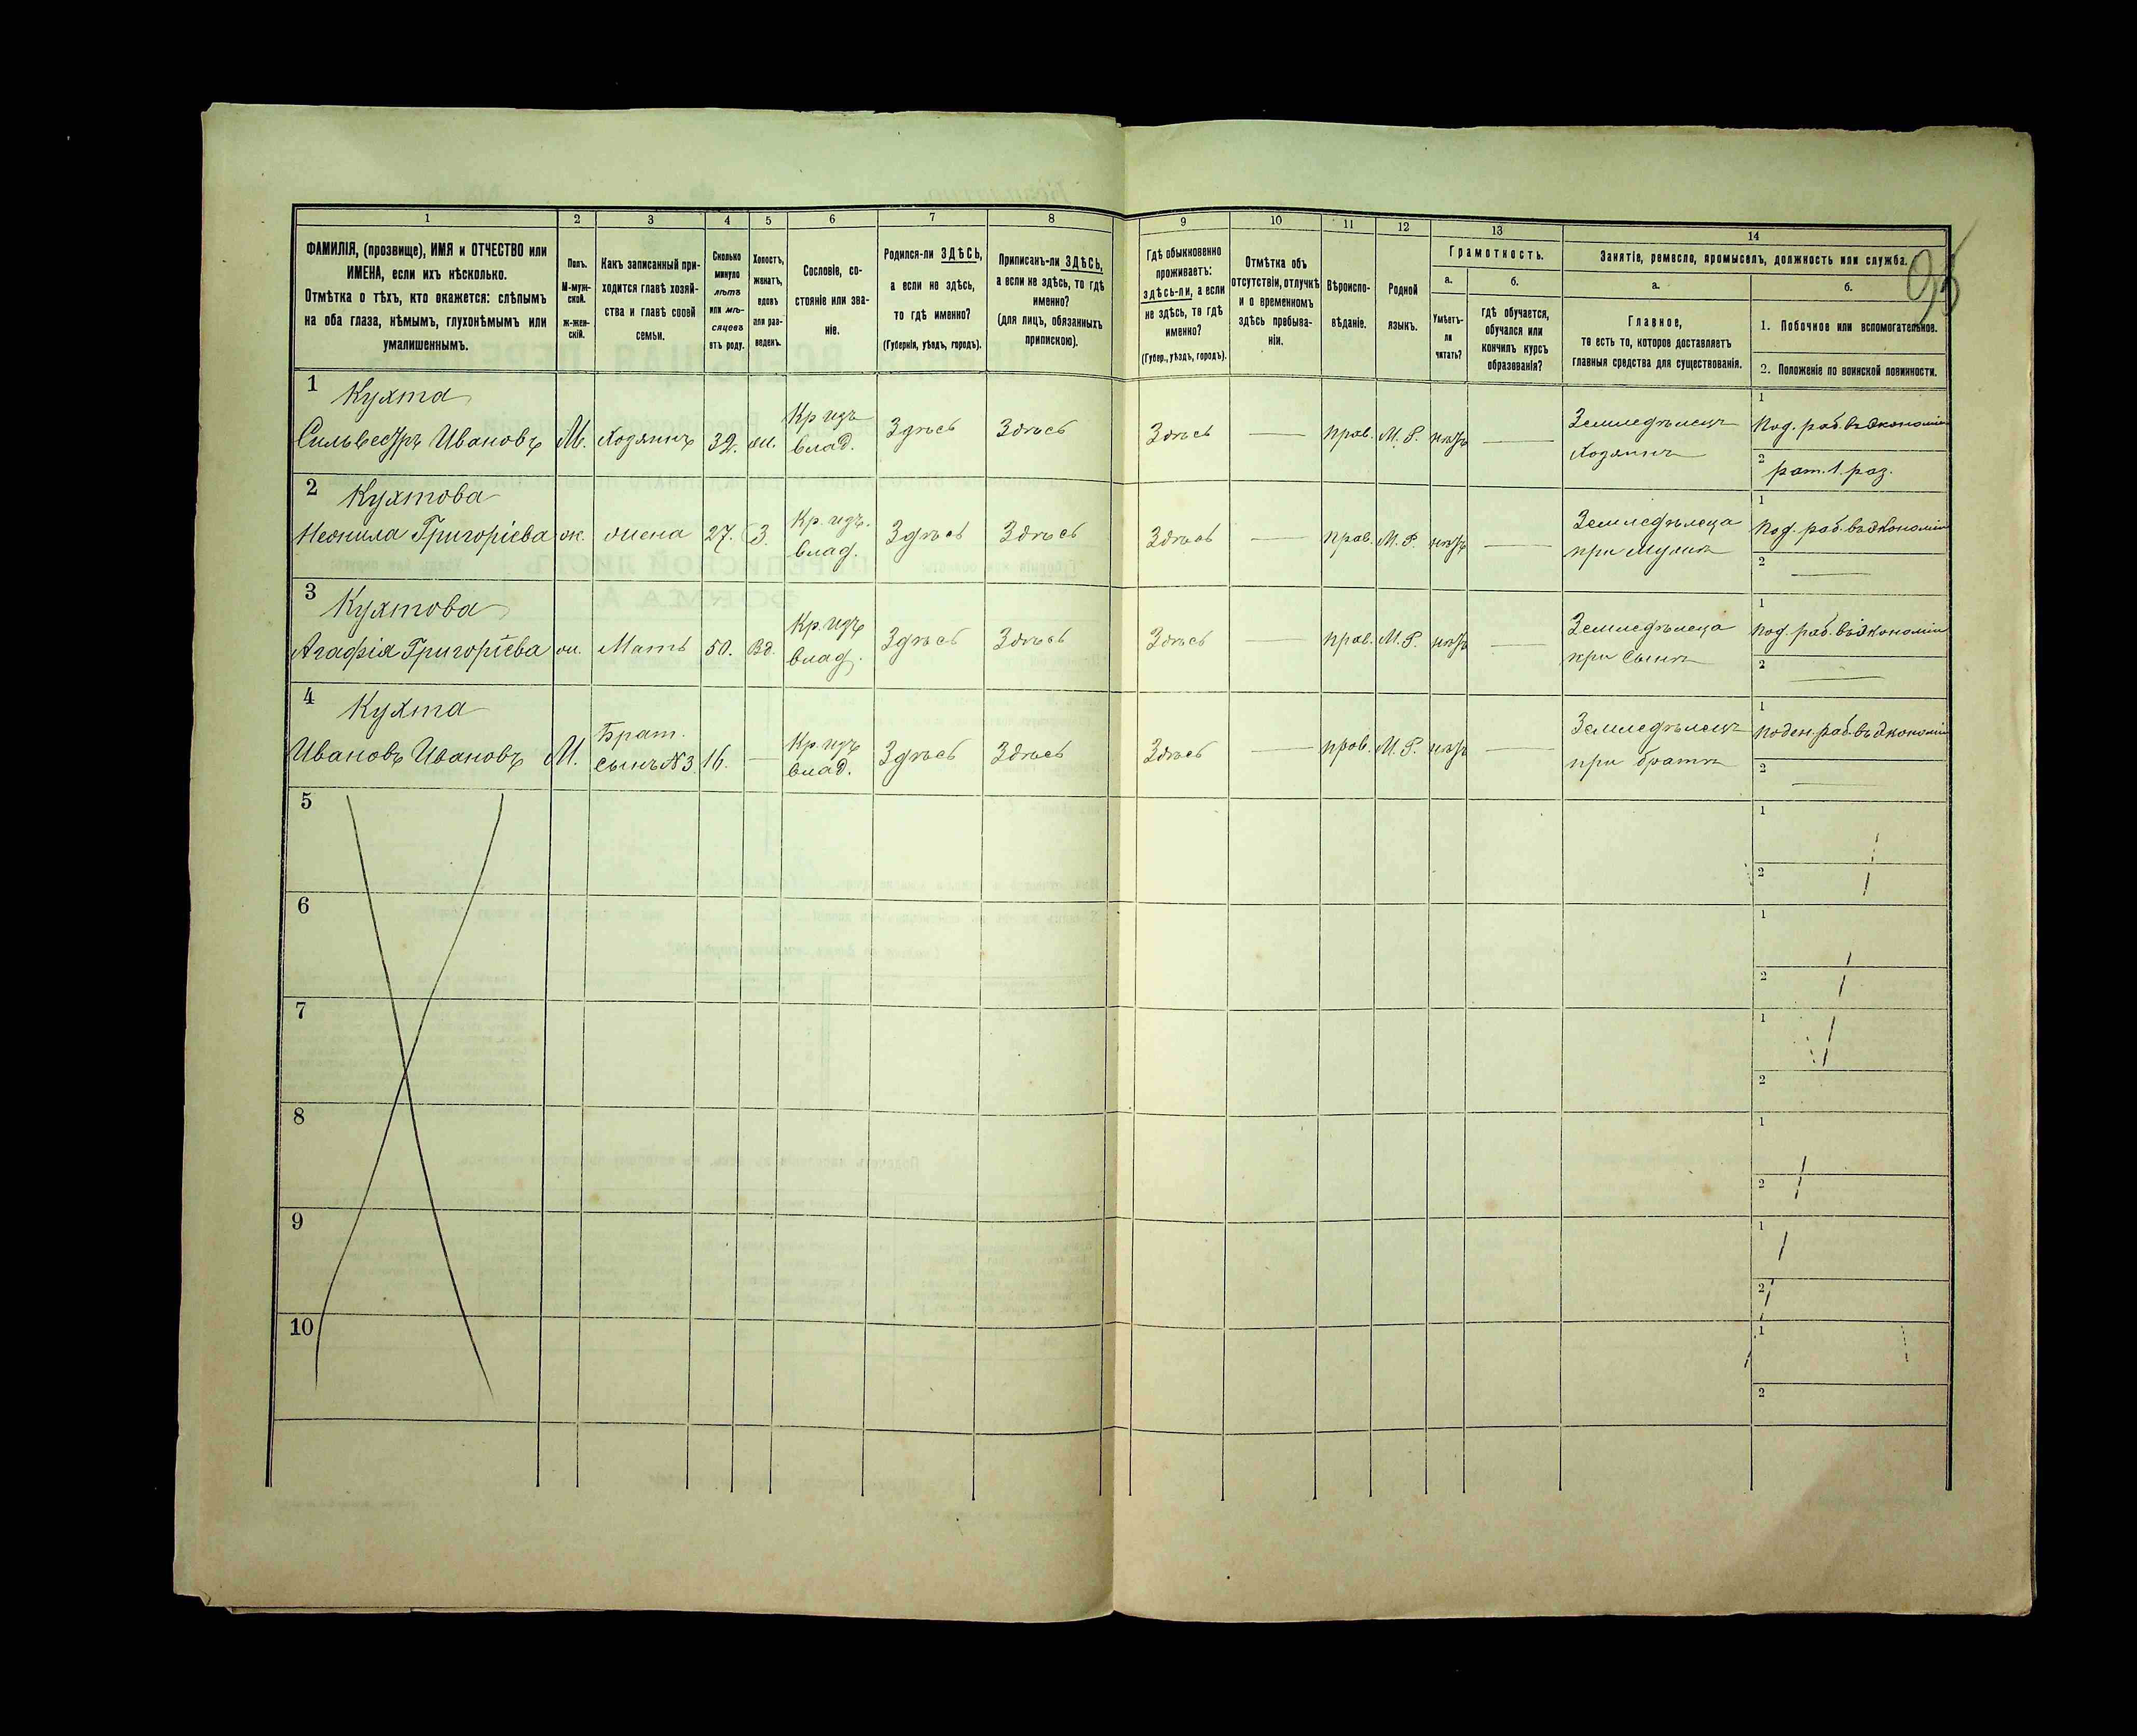 95
1 2 3 4 5 6 7 8 9 10 11 12 13 14
ФАМИЛІЯ, (прозвище), ИМЯ и ОТЧЕСТВО или
ИМЕНА, если ихъ нѣсколько.
Отмѣтка о тѣхъ, кто окажется: слѣпымъ
на оба глаза, нѣмымъ, глухонѣмымъ или
умалишеннымъ.
Полъ.
М-муж-
ской.
ж-жен-
скій.
Какъ записанный при-
ходится главѣ хозяй-
ства и главѣ своей
семьи.
Сколько
минуло
лѣтъ
или мѣ-
сяцевъ
отъ роду.
Холостъ,
женатъ,
вдовъ
или раз-
веденъ.
Сословіе, со-
стояніе или зва-
ніе.
Родился-ли ЗДѢСЬ,
а если не здѣсь,
то гдѣ именно?
(Губернія, уѣздъ, городъ).
Приписанъ-ли ЗДѢСЬ,
а если не здѣсь, то гдѣ
именно?
(для лицъ, обязанныхъ
припискою).
Гдѣ обыкновенно
проживаетъ:
здѣсь-ли, а если
не здѣсь, то гдѣ
именно?
(Губер., уѣздъ, городъ).
Отмѣтка объ
отсутствіи, отлучкѣ
и о временномъ
здѣсь пребыва-
ніи.
Вѣроиспо-
вѣданіе.
Родной
языкъ.
Грамотность.
а.
Умѣетъ-
ли
читать?
б.
гдѣ обучается,
обучался или
кончилъ курсъ
образованія?
Занятіе, ремесло, промыселъ, должность или служба.
а.
Главное,
то есть то, которое доставляетъ
главныя средства для существованія.
б.
1. Побочное или вспомогательное.
2. Положеніе по воинской повинности.
1 Кухта
Сильвестръ Ивановъ М. Хозяинъ 32. ж. Кр изъ влад. Здѣсь Здѣсь Здѣсь — прав. М. Р. нѣтъ — Земледѣлецъ Хозяинъ
1 Под. раб. въ экономіи
2 рат. 1. раз.
2 Кухтова
Неонила Григоріева ж. жена 27. З. Кр. изъ. влад. Здѣсь Здѣсь Здѣсь — прав. М. Р. нѣтъ — Земледѣлеца при мужѣ
1 Под. раб. въ экономіи
2 —
3 Кухтова
Агафія Григоріева ж. Мать 50. Вд. Кр. изъ влад. Здѣсь Здѣсь Здѣсь — прав. М. Р. нѣтъ — Земледѣлеца при Сынѣ
1 Под. раб. въ экономіи
2 —
4 Кухта
Ивановъ Ивановъ М. Брат. сынъ N3. 16. — Кр. изъ влад. Здѣсь Здѣсь Здѣсь — прав. М. Р. нѣтъ — Земледѣлецъ при братѣ
1 поден. раб. въ экономіи
2 —
5 1
2
6 1
2
7 1
2
8 1
2
9 1
2
10 1
2